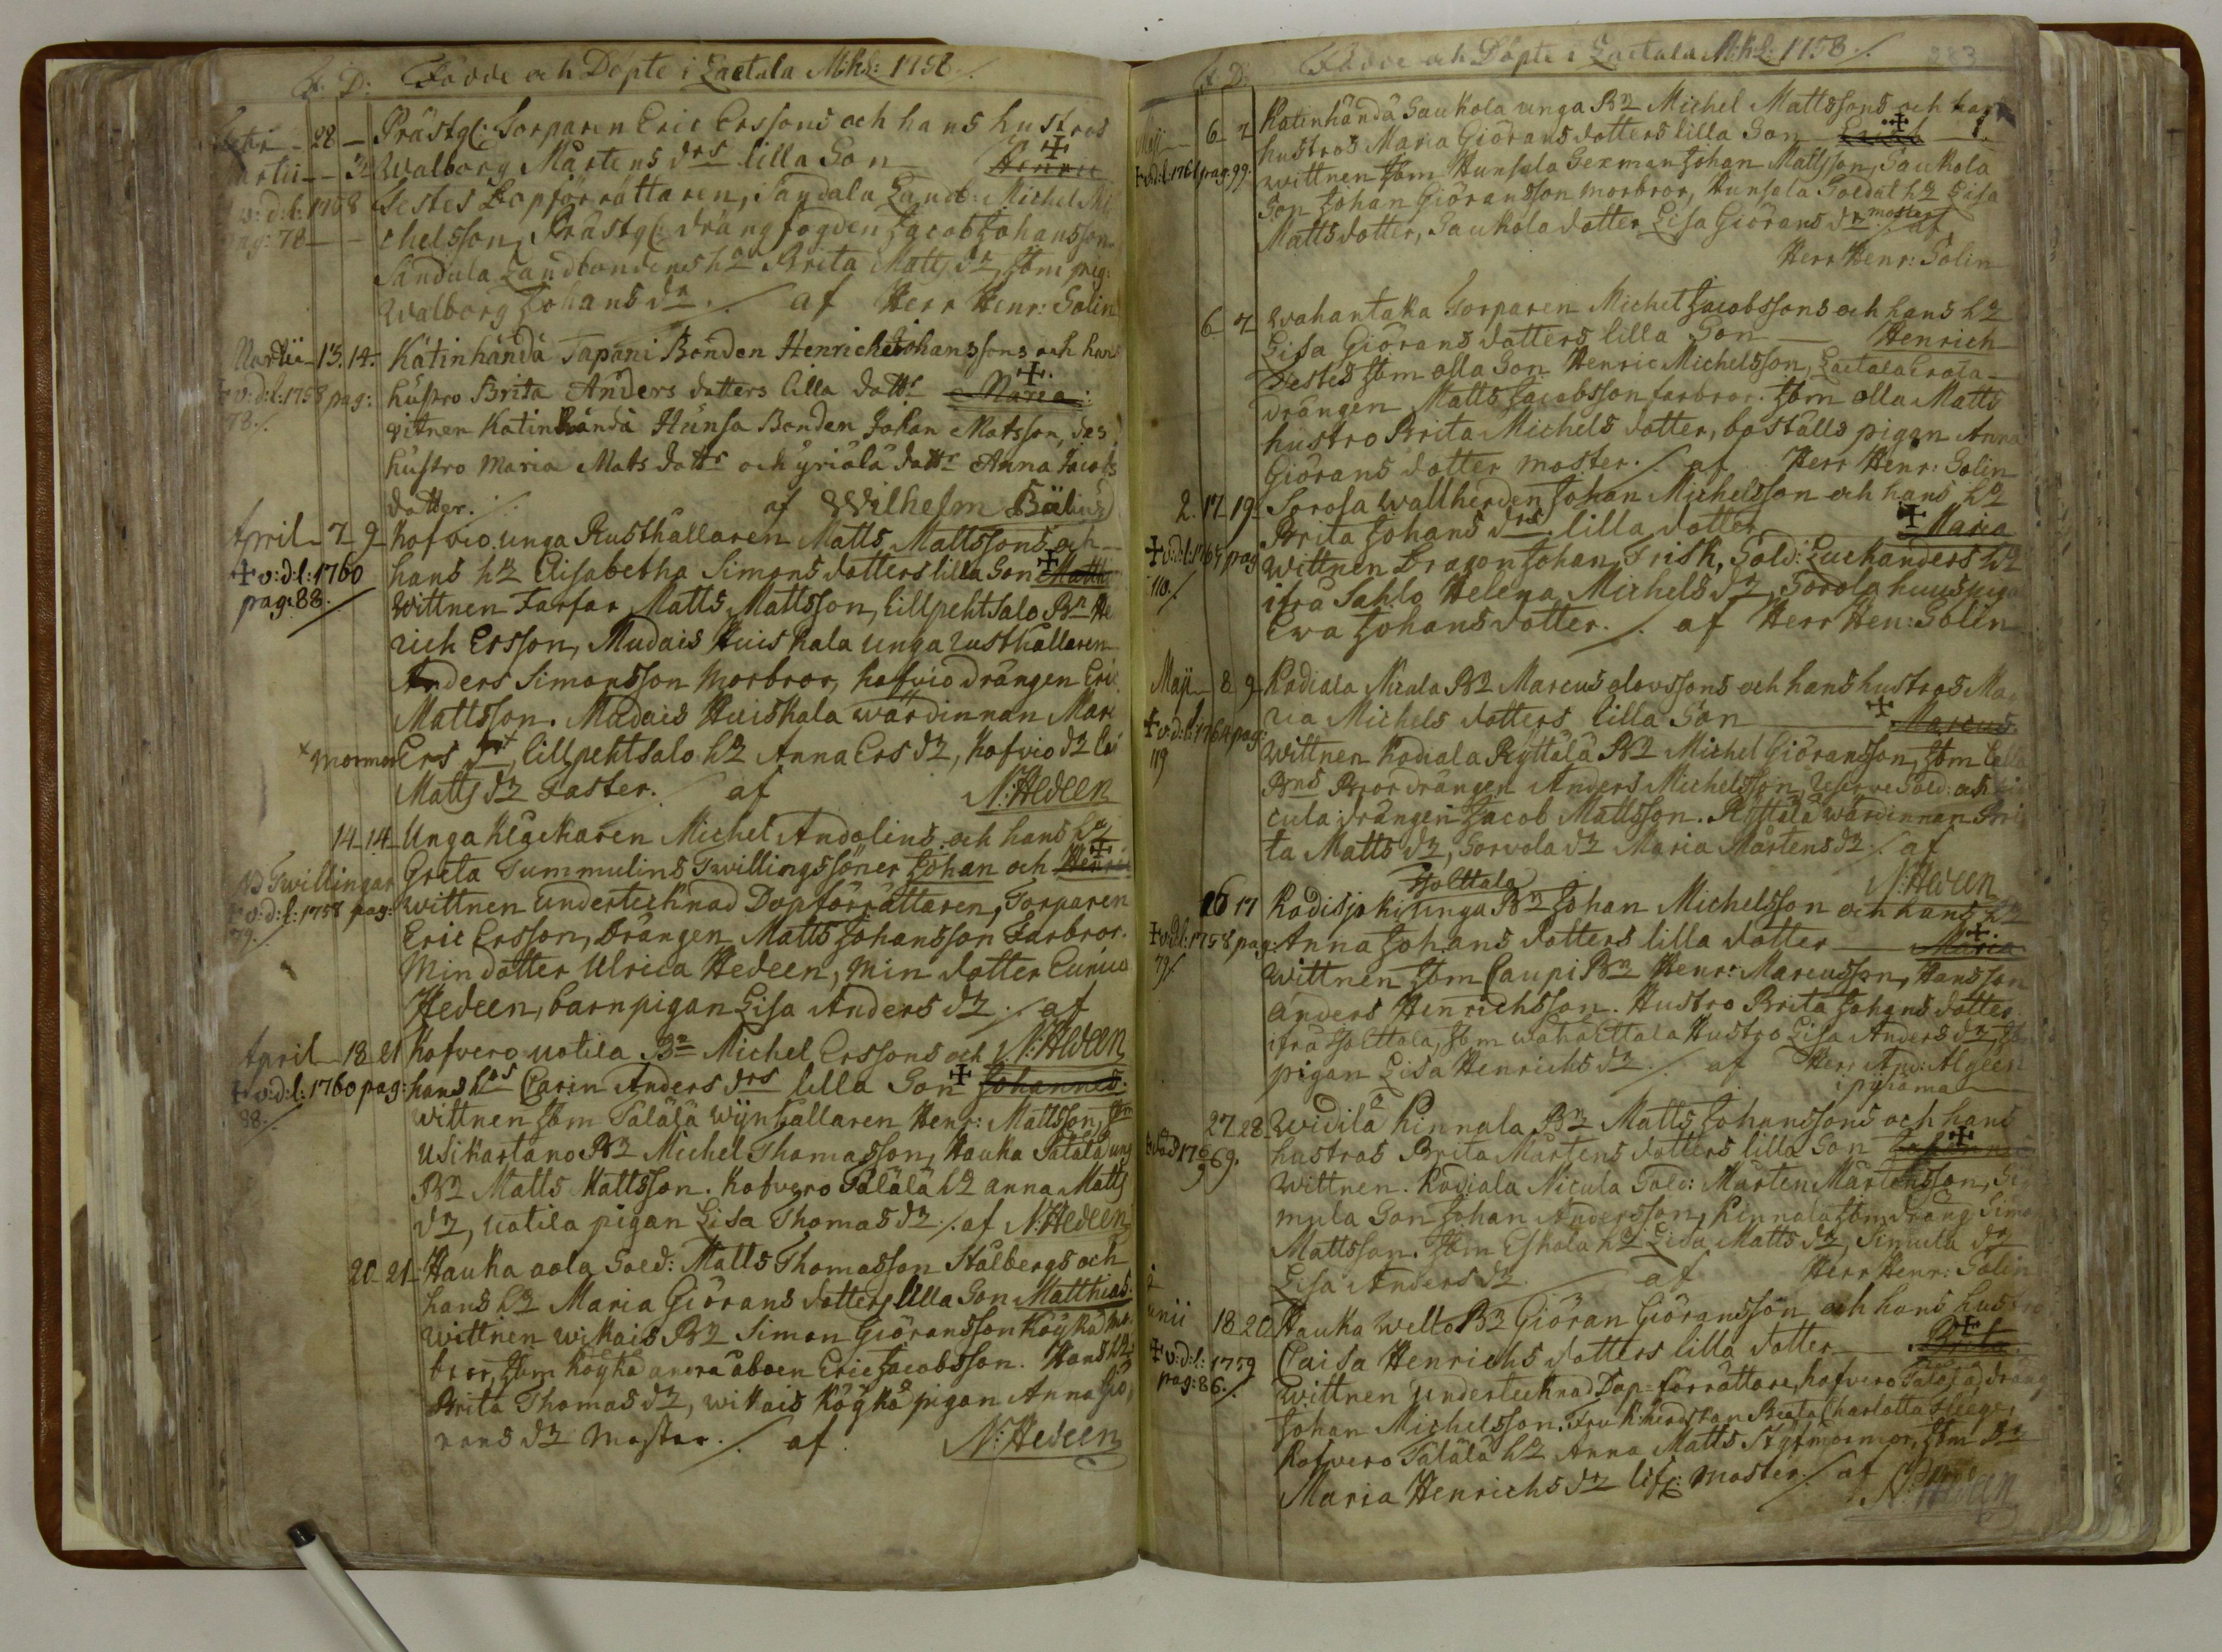 F. D: Födde och Döpte i Laetala M:kl: 1758./.
28 — Prästg: Torparen Eric Erssons och hans hustros
Walborg Mårtens drs lilla Son — Henric
v: d: l: 1758 Testes Dopförrättaren, Sandala Landb: Michel Mi
pag: 78 — chelsson, Prästg: drängfogden Jacob Johansson
Sandala Landbondens h:o Brita Matts dr, pig:
Walborg Johans dr ./. af Herr Henr: Solin
Martii — 13. 14. Kätinhändä Tapani Bonden Henrich Johanssons och hans
v: d: l: 1758 pag: hustro Brita Anders dotters lilla dottr Maria
78./. vitnen Katinhändä Hunsa Bonden Johan Matsson, des
hustro Maria Mats dottr och yriälä dottr Anna Jacobs
dotter. ./. af Wilhelm
April — 7 9 Kofvio unga Rusthållaren Matts Mattssons och
v: d: l: 1760 hans h:o Elisabetha Simons dotters lilla Son Matths
pag: 88. Wittnen Farfar Matts Mattsson, lillpehtsalo Bn He
rich Ersson, Mudais Huiskala unga rusthållaren
Anders Simonsson Morbror, Kofvio drängen Eric
Mattsson. Mudais Huiskala wärdinnan Mari
+ mormor Ers dr +, lillpehtsalo h:o Anna Ers dr, Kofvio dr
Matts dr Faster. ./. af N: Hedeen
14 14 Unga Klåckaren Michel Andolins och hans h:o
NB Twillingar Greta Tummulins Twillingssöner Johan och Henric
v: d: l: 1758 pag: wittnen undertecknad Dopförrättaren, Torparen
79. Eric Ersson, Drängen Matts Johansson Farbror.
Min dotter Ulrica Hedeen, Min dotter
Hedeen, barnpigan Lisa Anders dr ./. af
April — 18 21 Kofvero uotila Bn Michel Erssons och N: Hedeen
v: d: l: 1760 pag: hans h:os Carin Anders drs lilla Son Johannes
88./. wittnen Talälä Henr: Mattsson,
Usikartano Bn Michel Thomasson, Hauka Talälä ung
Bn Matts Mattsson. Kofvero Talälä h:o anna Matts
dr, uotila pigan Lisa Thomas dr ./. af N: Hedeen
20 21 Hauka aola Sold: Matts Thomasson Stålbergs och
hans h:o Maria Giörans dotters lilla Son Matthias.
wittnen wikais Bn Simon Giöransson Köykä mor
bror, Köykä andra åboen Eric Jacobsson. Hans h:o
Brita Thomas dr, wikais Köykä pigan Anna Giö
rans dr Moster. ./. af N: Hedeen
F. D: Födde och Döpte i Laetala M:kl: 1758./. 283
Maji — 6 7 Katinhändä Saukola unga Bn Michel Mattssons och hans
hustros Maria Giörans dotters lilla Son
v: d: l: 1761 pag: 99. wittnen Hunsala Sexman Johan Mattsson, Saukola
Son Johan Giöransson morbror, Hunsala Soldat h:o Lisa
Matts dotter, Saukola dotter Lisa Giörans dr moster ./. af
Herr Henr: Solin
6 7 wahantaka Torparen Michel Jacobssons och hans h:o
Lisa Giörans dotters lilla Son — Henrich
Testes olla Son Henric Michelsson, Laetala
drängen Matts Jacobsson farbror. olla Matts
hustro Brita Michels dotter, boställs pigan Anna
Giörans dotter moster ./. af Herr Henr: Solin
2. 17 19 Sorosa wallherden Johan Michelsson och hans h:o
Brita Johans drs lilla dotter — Maria
v: d: l: 1765 pag wittnen Dragon Johan Frisk, Sold: Luckanders h:o
110./. ifrå Sahlo Helena Michels dr, Sorola huuspiga
Ewa Johans dotter. ./. af Herr Hen: Solin
Maji — 8 9 Kodiala Nicula Bn Marcus olovssons och hans hustros Ma
ria Michels dotters lilla Son — Marcus
v: d: l: 1764 pag: wittnen Kodiala Ryttälä Bn Michel Giöransson,
119 Bns Bror drängen Anders Michelsson, Reserve Sold: och Ni
cula drängen Jacob Mattsson. Ryttälä wärdinnan Bri
ta Matts dr, Sorvola dr Maria Mårtens dr ./. af
N: Hedeen
16 17 Kodisjoki Isoettala unga Bn Johan Michelsson och hans h:o
v: d: l: 1758 pag: Anna Johans dotters lilla dotter — Maria
79./. wittnen Caupi Bn Henr: Marcusson, Hans son
Anders Henrichsson. Hustro Brita Johans dotter
ifrå Isoettala, wähä Ettala Hustro Lisa Anders dr,
pigan Lisa Henrichs dr ./. af Herr And: Algeen
i pyhäma
27 28 Widilä Kinnala Bn Matts Johanssons och hans
hustros Brita Mårtens dotters lilla Son Johannes
wittnen. Kodiala Nicula Sold: Mårten Mårtensson, Si
mula Son Johan Andersson, Kinnala dräng Simon
Mattsson. Eskola h:o Lisa Matts dr, Simula dr
Lisa Anders dr ./. af Herr Henr: Solin
Junii 18 20 Hauka wello Bn Giöran Giöransson och hans hustro
v: d: l: 1759 Caisa Henrichs dotters lilla dotter — Brita
pag: 86./. wittnen undertecknad Dop-förrättare, Kofvero Talälä dräng
Johan Michelsson. Fru Beata Charlotta
Kofvero Talälä h:o Anna Matts Styfmormor, dr
Maria Henrichs dr moster. ./. af N: Hedeen